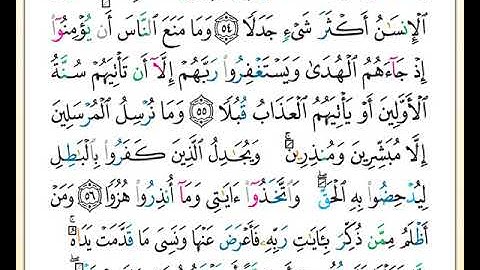 ٱلۡإِنسَٰنُ أَكۡثَرَ شَيۡءٖ جَدَلٗا ٥٤ وَمَا مَنَعَ ٱلنَّاسَ أَن يُؤۡمِنُوٓاْ
إِذۡ جَآءَهُمُ ٱلۡهُدَىٰ وَيَسۡتَغۡفِرُواْ رَبَّهُمۡ إِلَّآ أَن تَأۡتِيَهُمۡ سُنَّةُ
ٱلۡأَوَّلِينَ أَوۡ يَأۡتِيَهُمُ ٱلۡعَذَابُ قُبُلٗا ٥٥ وَمَا نُرۡسِلُ ٱلۡمُرۡسَلِينَ
إِلَّا مُبَشِّرِينَ وَمُنذِرِينَۚ وَيُجَٰدِلُ ٱلَّذِينَ كَفَرُواْ بِٱلۡبَٰطِلِ
لِيُدۡحِضُواْ بِهِ ٱلۡحَقَّۖ وَٱتَّخَذُوٓاْ ءَايَٰتِي وَمَآ أُنذِرُواْ هُزُوٗا ٥٦ وَمَنۡ
أَظۡلَمُ مِمَّن ذُكِّرَ بِـَٔايَٰتِ رَبِّهِۦ فَأَعۡرَضَ عَنۡهَا وَنَسِيَ مَا قَدَّمَتۡ يَدَاهُۚ